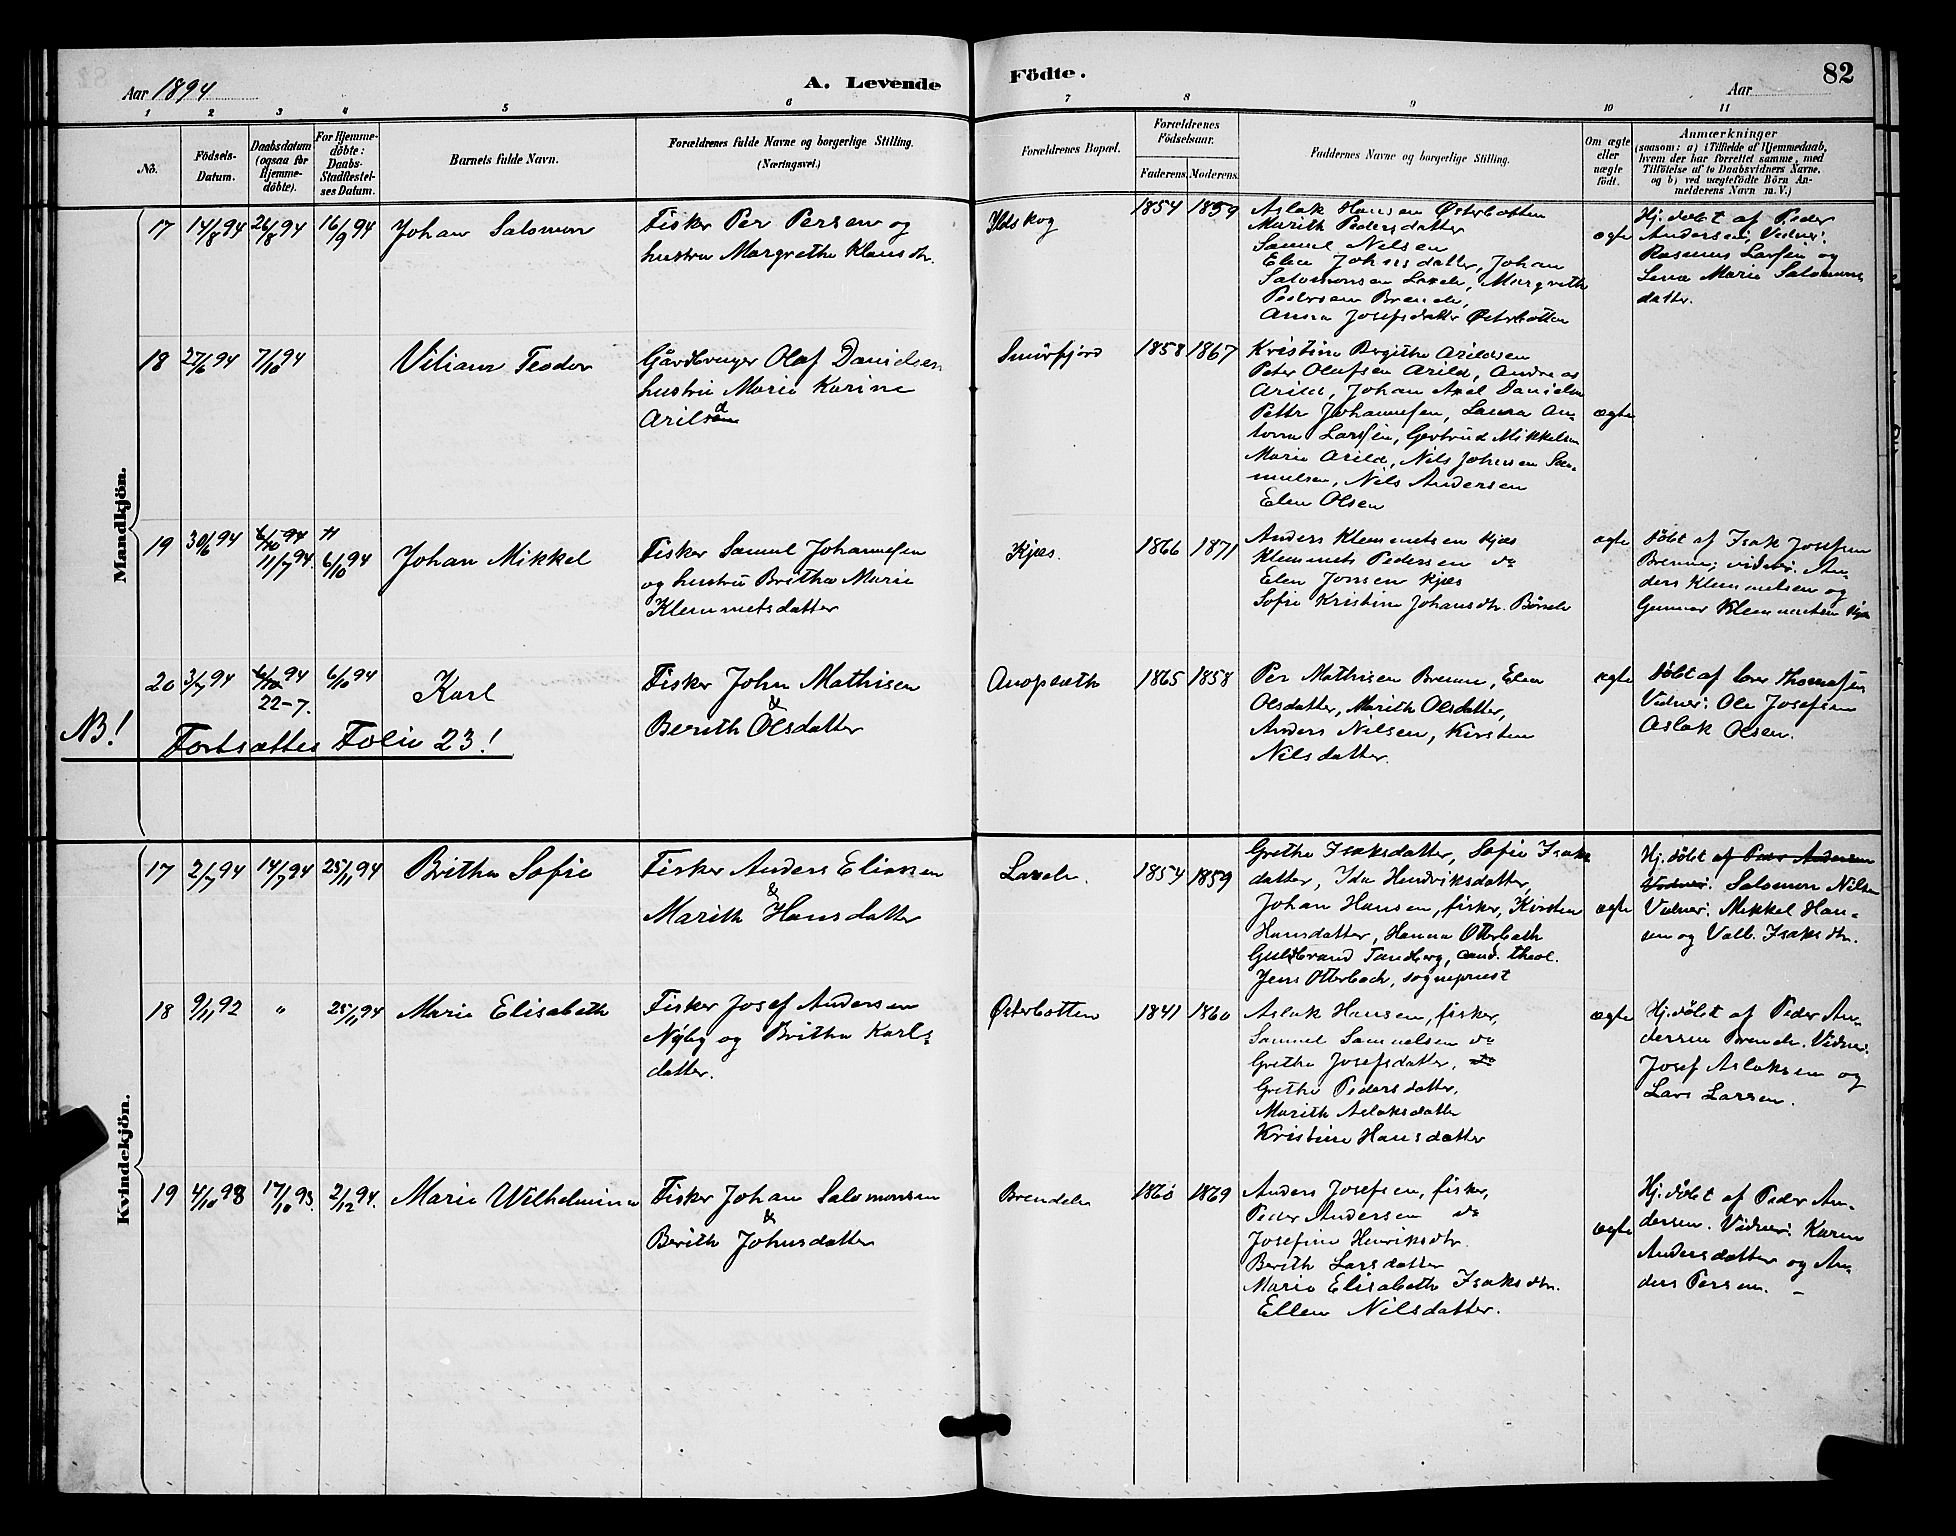 Aar 1894
A. Levende
Födte.
Aar
82
1 2 3 4 5 6 7 8 9 10 11
No.
Födsels-
Datum.
Daabsdatum
(ogsaa for
Hjemme-
döbte).
For Hjemme-
döbte:
Daabs-
Stadfæstel-
ses Datum.
Barnets fulde Navn.
Forældrenes fulde Navne og borgerlige Stilling.
(Næringsvei.)
Forældrenes Bopæl.
Forældrenes
Födselsaar.
Faderens. Moderens.
Faddernes Navne og borgerlige Stilling.
Om ægte
eller
nægte
født.
Anmærkninger
(saasom: a) i Tilfælde af Hjemmedaab,
hvem der har forrettet samme, med
Tilföielse af to Daabsvidners Navne,
og b) ved uægtefödte Börn An-
melderens Navn m. V.)
Mandkjön.
17 14/8 94 26/8 94 16/9 94 Johan Salomon
Fisker Per Persen og
hustru Margrethe Klausdtr.
Ildskog
1854 1859
Aslak Hansen Østerbotten
Marith Pedersdatter
Samul Nilsen
Elen Johnsdatter, Johan
Salomonsen Laxelv, Margrethe
Pedersen Brendelv,
Anna Josefsdatter Østerbotten
ægte
Hj. døbt af Peder
Andersen; Vidner:
Rasmus Larsen og
Lena Marie Salomons
datter.
18 27/6 94 7/10 94 Viliam Teodor
Gårdbruger Olaf Danielsen
hustru Marie Karine
Arild
Smörfjord
1858 1867
Kristine Birgithe Arildsen
Peter Olafsen Arild, Andreas
Arild, Johan Axel Danielsen
Petter Johannesen, Laura An-
tona Larsen, Gertrud Mikkelsen
Marie Arild, Nils Johnsen Sa-
muelsen, Nils Andersen
Elen Olsen
ægte
19 30/6 94 6/10 94 11/7 94. 6/10 94 Johan Mikkel
Fisker Samul Johannesen
og hustru Britha Marie
Klemmetsdatter
Kjæs.
1866 1871
Anders Klemmetsen Kjæs
Klemmet Pedersen do
Elen Jonsen Kjæs
Sofie Kristine Johansdtr. Børselv
ægte
Døbt af Isak Josefsen
Brenna; vidner: An-
ders Klemmetsen og
Gunnar Klemmetsen Kjæs
20 3/7 94 6/10 94 22-7. 6/10 94 Karl
Fisker John Mathisen
&
Berith Olsdatter
1865 1858
Per Mathisen Brenna, Elen
Olsdatter, Marith Olsdatter,
Anders Nilsen, Kirsten
Nilsdatter.
ægte
Døbt af Iver Thomasen
Vidner: Ole Josefsen
Aslak Olsen.
NB! Fortsættes Folie 23!
Kvindekjön.
17 2/7 94 14/7 94 25/11 94 Britha Sofie
Fisker Anders Eliassen
&
Marith Hansdatter
Laxelv.
1854 1859
Grethe Isaksdatter, Sofie Isaks
datter, Ida Henriksdatter,
Johan Hansen, fisker, Kirsten
Hansdatter, Hanna Otterbech
Guldbrand Tandberg, cand. theol.
Jens Otterbech, sogneprest
ægte
Hj. døbt af Peder Andersen
Vidner: Salomon Nilsen
Vidner: Mikkel Han-
sen og Valb. Isaksdtr.
18 9/11 92 " 25/11 94 Marie Elisabeth
Fisker Josef Andersen
Nyby og Britha Karls-
datter.
Østerbotten
1841 1860
Aslak Hansen, fisker,
Samuel Samuelsen do
Grethe Josefsdatter, do
Grethe Pedersdatter,
Marith Aslaksdatter
Kristine Hansdatter
ægte
Hj. døbt af Peder An-
dersen Brendelv. Vidner:
Josef Aslaksen og
Lars Larsen.
19 4/10 93 17/10 93. 2/12 94. Marie Wilhelmine
Fisker Johan Salomonsen
&
Berith Johnsdatter
Brendelv
1860 1869
Anders Josefsen, fisker,
Peder Andersen do
Josefine Henriksdtr.
Berith Larsdatter
Marie Elisabeth Isaksdtr.
Ellen Nilsdatter.
ægte
Hj. døbt af Peder An-
dersen. Vidner: Karen
Andersdatter og An-
ders Persen. –